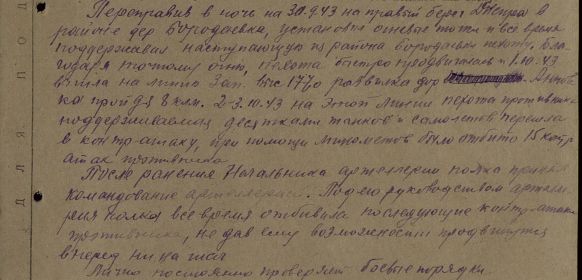 Переправив в ночь на 30.9.43 на правый берег Днепра в
районе дер Бородаевка, установил огневые точки и все время
поддерживал наступающую из района Бородаевки пехоту. Бла-
годаря точному огню, пехота быстро продвигалась и 1.10.43
вышла на линию Зап. выс 177,0 развилка дор
ка пройдя 8 клм. 2-3.10.43 на этой линии пехота противника
поддерживаемая десятками танков и самолетов перешла
в контр-атаку, при помощи минометов было отбито 15 контр
атак противника
После ранения Начальника артеллерии полка принял
командование артеллерией. Под его руководством артелле-
рия полка все время отбивала последующие контр-атаки
противника, не дав ему возможности продвинутся
вперед ни на шаг
Лично постоянно проверяет боевые порядки